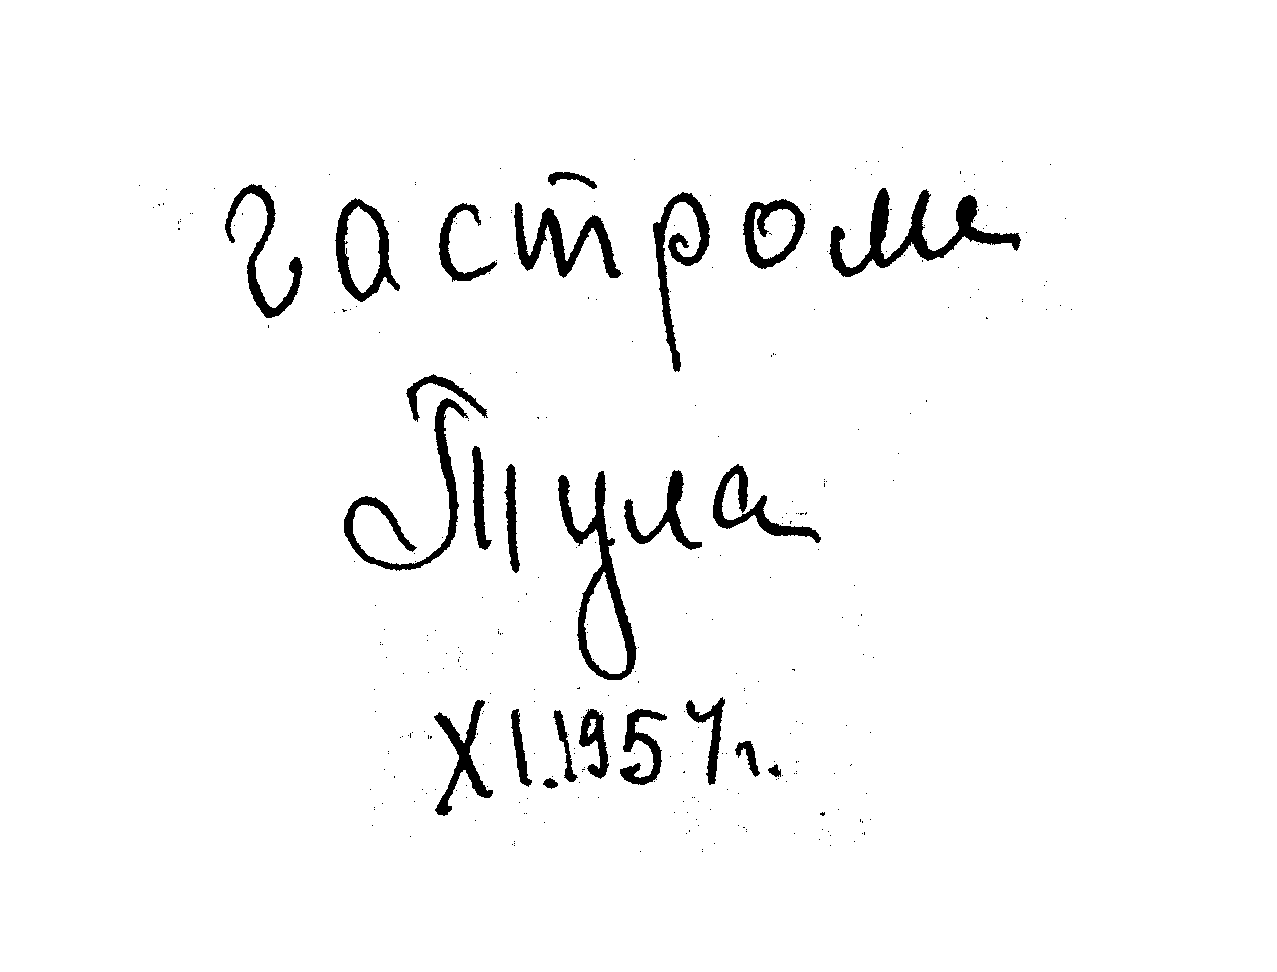 гастроли
Тула
XI.1957г.